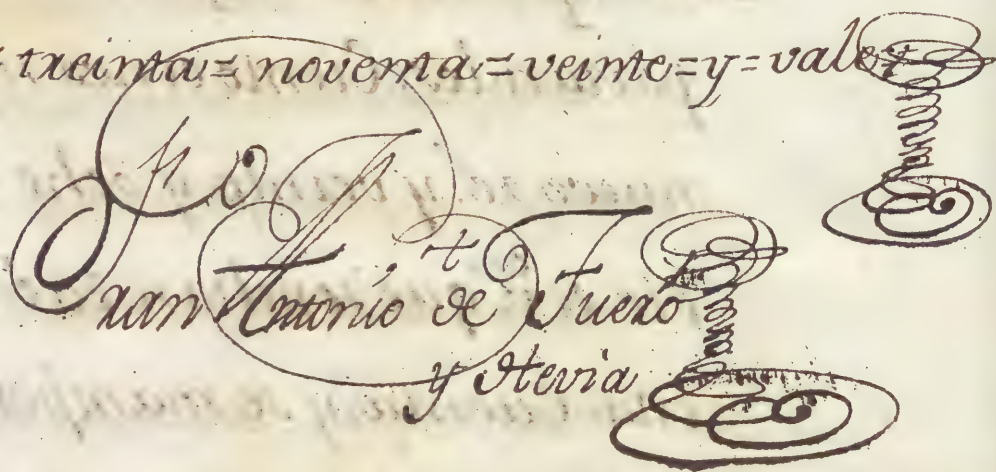 = treinta = noventa = veinte = y = vale
Fran Antonio de Fuero
y Hevia